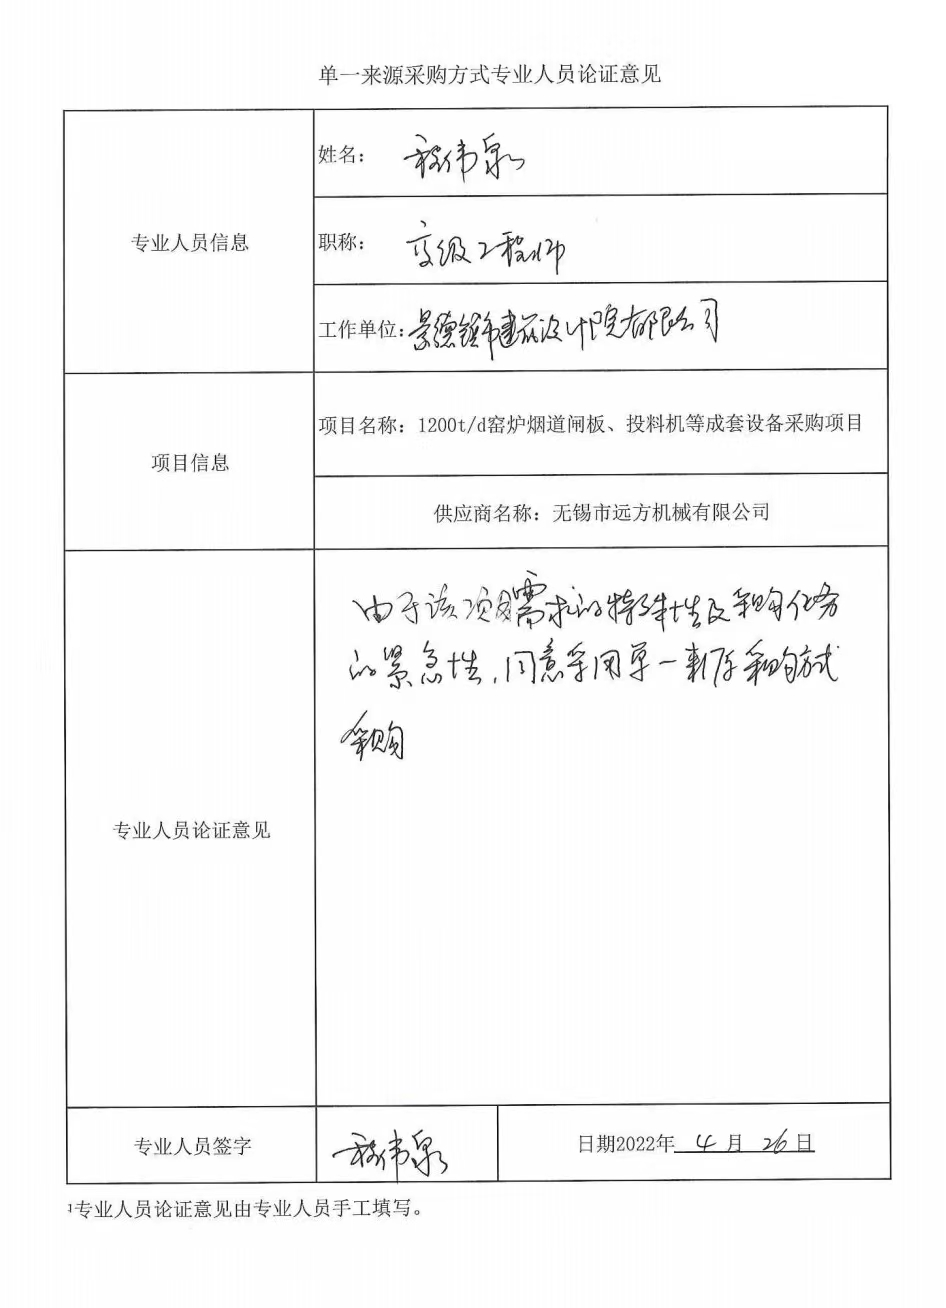 单一来源采购方式专业人员论证意见
专业人员信息
姓名：程伟泉
职称：高级工程师
工作单位：景德镇市建筑设计院有限公司
项目信息
项目名称：1200t/d窑炉烟道闸板、投料机等成套设备采购项目
供应商名称：无锡市远方机械有限公司
专业人员论证意见
由于该项目需求的特殊性及采购任务
的紧急性，同意采用单一来源采购方式
采购
专业人员签字
程伟泉
日期2022年 4 月 26日
¹专业人员论证意见由专业人员手工填写。